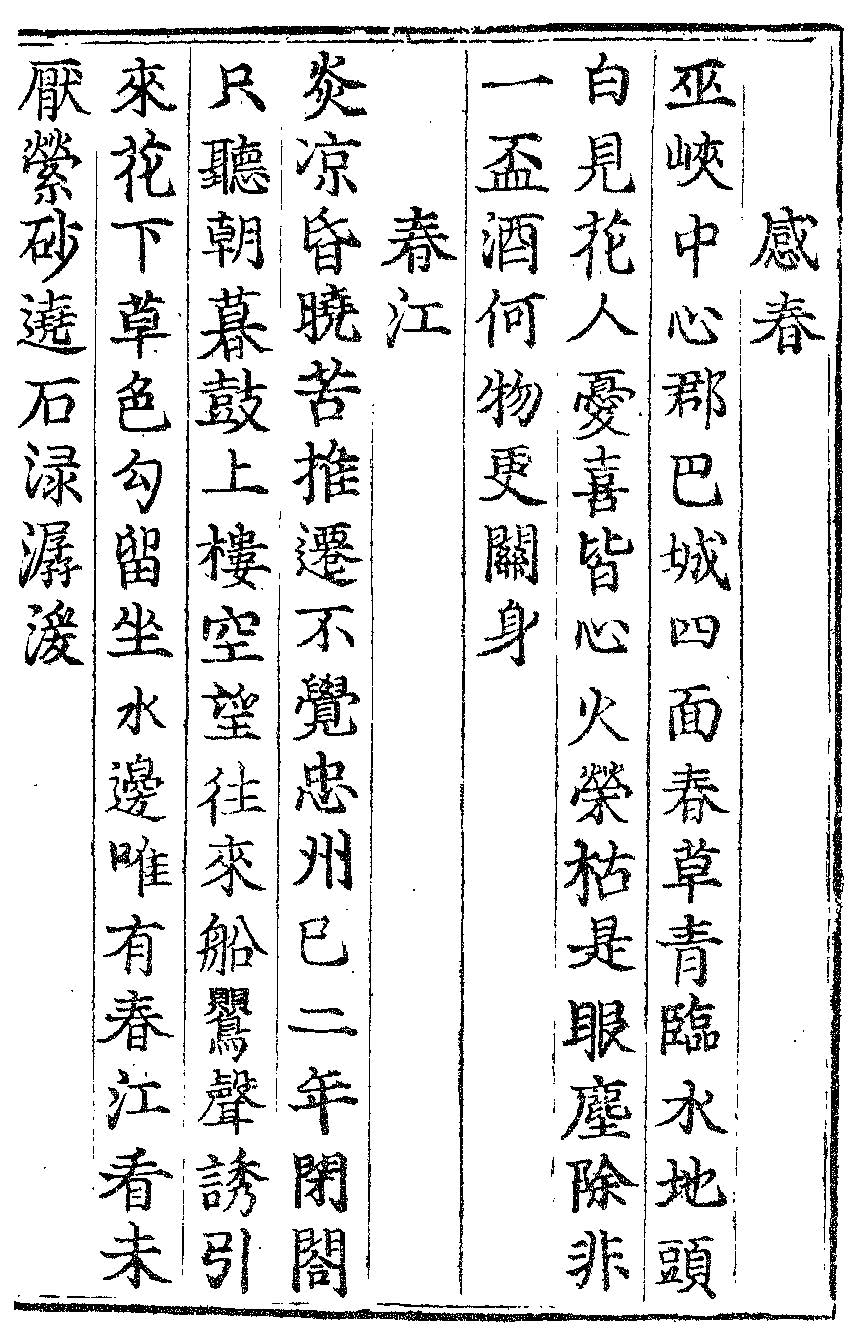 感春
巫峽中心郡巴城四面春草青臨水地頭
白見花人憂喜皆心火榮枯是眼塵除非
一盃酒何物更關身
春江
炎凉昏曉苦推遷不覺忠州已二年閉閤
只聽朝暮鼓上樓空望往來船鸎聲誘引
來花下草色勾留坐水邊唯有春江看未
厭縈砂遶石渌潺湲